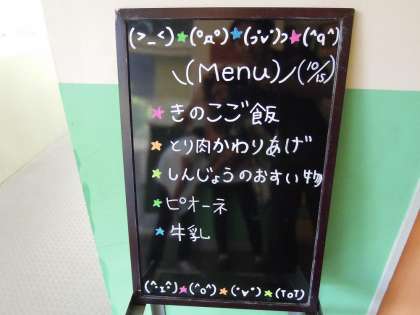 (>_<)★(°д°)★(っ'v')っ★(^q^)
\(Menu)/(10/15)
★きのこご飯
★とり肉かわりあげ
★しんじょうのおすい物
★ピオーネ
★牛乳
(^-ェ^)★(^o^)★(*'v'*)★(ToT)